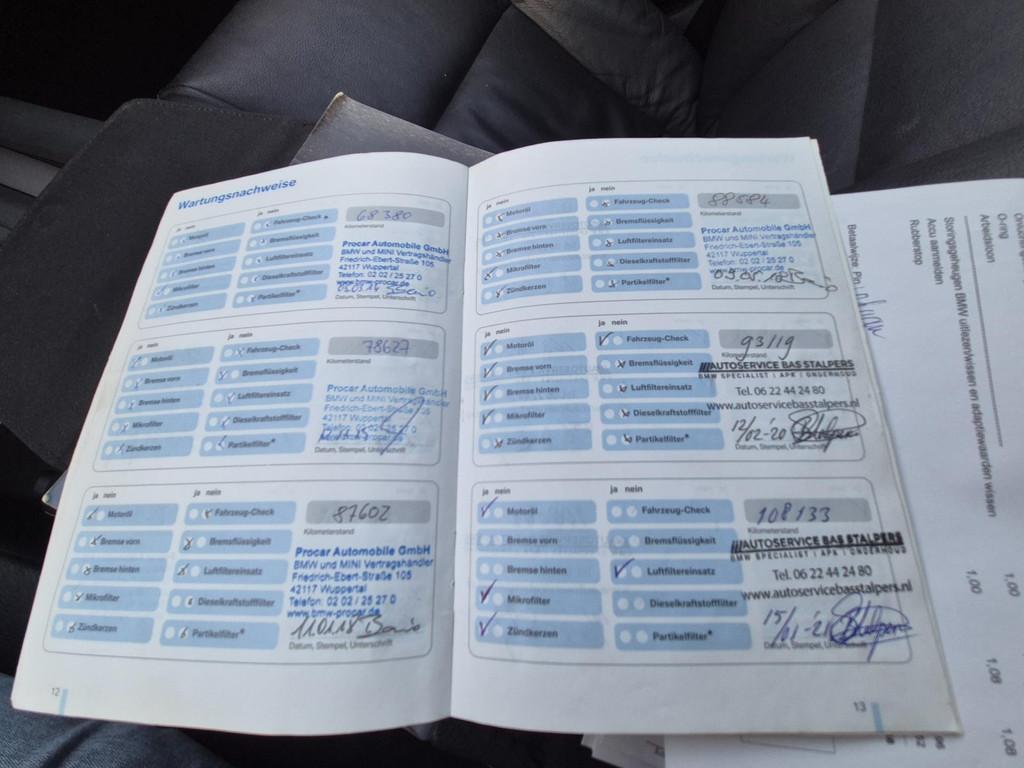 Wartungsnachweise
ja nein
ja nein
Motoröl
Fahrzeug-Check
68380
Bremse vorn
Bremsflüssigkeit
Kilometerstand
Bremse hinten
Luftfiltereinsatz
Mikrofilter
Dieselkraftstofffilter
Zündkerzen
Partikelfilter*
Procar Automobile GmbH
BMW und MINI Vertragshändler
Friedrich-Ebert-Straße 105
42117 Wuppertal
Telefon: 02 02 / 25 27 0
www.bmw-procar.de
Datum, Stempel, Unterschrift
ja nein
ja nein
Motoröl
Fahrzeug-Check
78627
Bremse vorn
Bremsflüssigkeit
Kilometerstand
Bremse hinten
Luftfiltereinsatz
Mikrofilter
Dieselkraftstofffilter
Zündkerzen
Partikelfilter*
Procar Automobile GmbH
BMW und MINI Vertragshändler
Friedrich-Ebert-Straße 105
42117 Wuppertal
Telefon: 02 02 / 25 27 0
www.bmw-procar.de
Datum, Stempel, Unterschrift
ja nein
ja nein
Motoröl
Fahrzeug-Check
87602
Bremse vorn
Bremsflüssigkeit
Kilometerstand
Bremse hinten
Luftfiltereinsatz
Mikrofilter
Dieselkraftstofffilter
Zündkerzen
Partikelfilter*
Procar Automobile GmbH
BMW und MINI Vertragshändler
Friedrich-Ebert-Straße 105
42117 Wuppertal
Telefon: 02 02 / 25 27 0
www.bmw-procar.de
11.01.18
Datum, Stempel, Unterschrift
12
ja nein
ja nein
Motoröl
Fahrzeug-Check
Bremse vorn
Bremsflüssigkeit
Kilometerstand
Bremse hinten
Luftfiltereinsatz
Mikrofilter
Dieselkraftstofffilter
Zündkerzen
Partikelfilter*
Procar Automobile GmbH
BMW und MINI Vertragshändler
Friedrich-Ebert-Straße 105
42117 Wuppertal
Telefon: 02 02 / 25 27 0
www.bmw-procar.de
Datum, Stempel, Unterschrift
ja nein
ja nein
Motoröl
Fahrzeug-Check
93119
Bremse vorn
Bremsflüssigkeit
Kilometerstand
Bremse hinten
Luftfiltereinsatz
Mikrofilter
Dieselkraftstofffilter
Zündkerzen
Partikelfilter*
AUTOSERVICE BAS STALPERS
BMW SPECIALIST | APK | ONDERHOUD
Tel. 06 22 44 24 80
www.autoservicebasstalpers.nl
12/02-'20
Datum, Stempel, Unterschrift
ja nein
ja nein
Motoröl
Fahrzeug-Check
108133
Bremse vorn
Bremsflüssigkeit
Kilometerstand
Bremse hinten
Luftfiltereinsatz
Mikrofilter
Dieselkraftstofffilter
Zündkerzen
Partikelfilter*
AUTOSERVICE BAS STALPERS
BMW SPECIALIST | APK | ONDERHOUD
Tel. 06 22 44 24 80
www.autoservicebasstalpers.nl
15/01-'21
Datum, Stempel, Unterschrift
13
O-ring
Arbeidsloon
Storingsgeheugen BMW uitlezen/wissen en adaptiewaarden wissen
Accu aanmelden
Rubberstop
Betaalwijze Pin
1,00
1,00
1,08
1,08